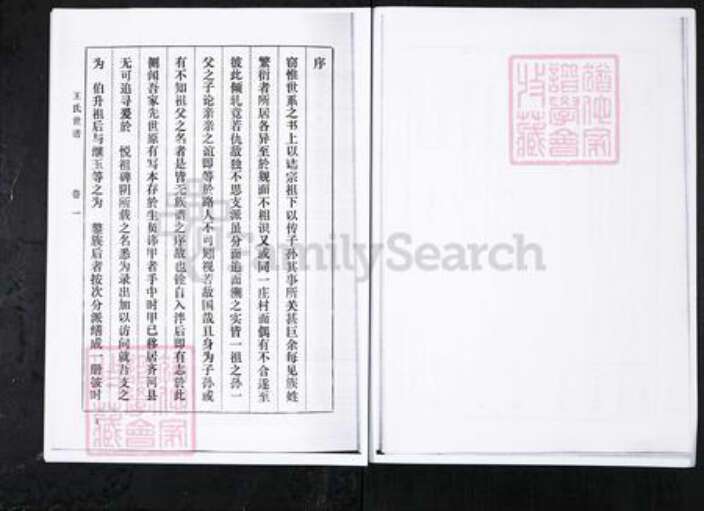 序
窃惟世系之书上以志宗祖下以传子孙其事所关甚巨余每见族姓
繁衍者所居各异至於觌面不相识又或同一庄村面偶有不合遂至
彼此倾轧竟若仇敌独不思支派虽分面追面溯之实皆一祖之孙一
父之子论亲亲之谊即等於路人不可顾视若敌国哉且身为子孙或
有不知祖父之名者是皆无族谱之序故也铨自入泮后即有志於此
侧闻吾家先世原有写本存於生员 甲者手中时甲已移居齐河县
无可追寻爰於 悦祖碑阴所载之名悉为录出加以访问就吾支之
为 伯升祖后与 玉等之为 鏊族后者按次分派缮成一册彼时
王氏世谱 卷一
FamilySearch